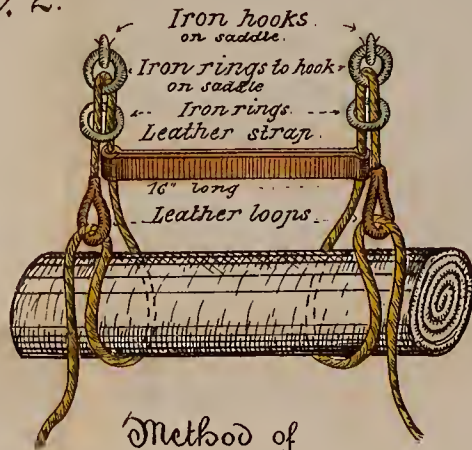 2.
Iron hooks
on saddle.
Iron rings to hook
on saddle
Iron rings.
Leather strap.
16" long
Leather loops
Method of